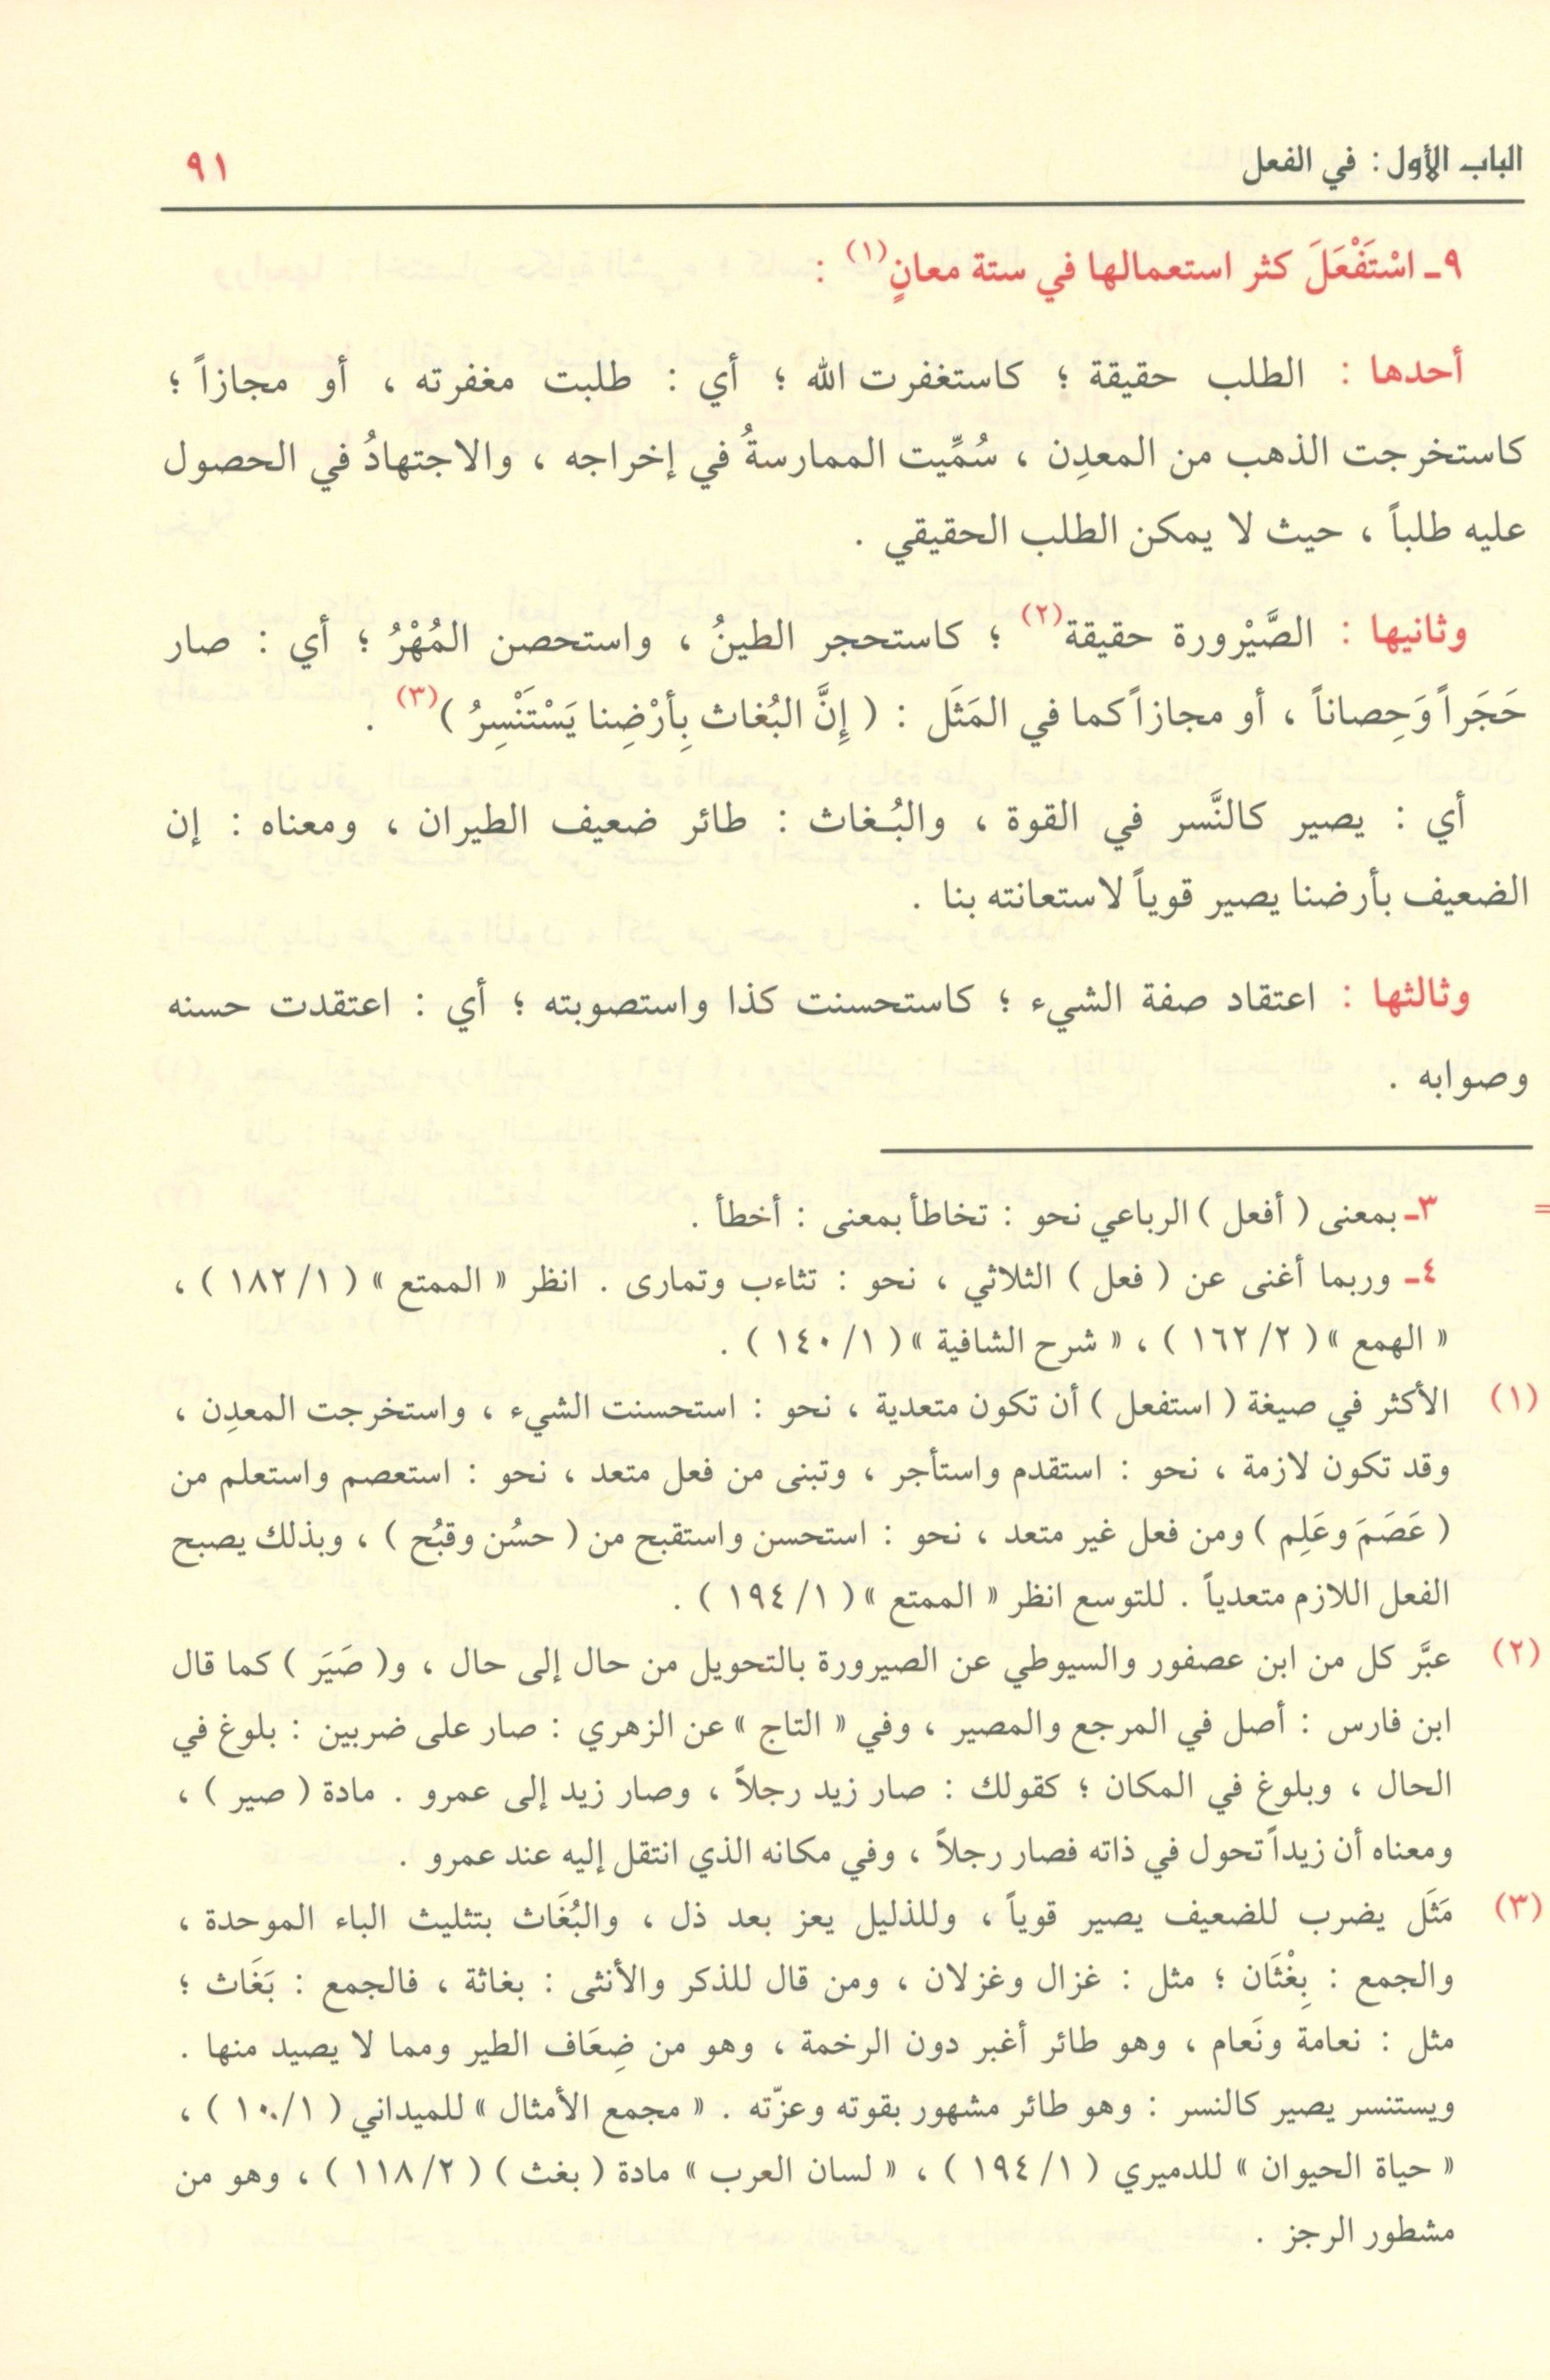 الباب الأول : في الفعل ٩١
٩ـ اسْتَفْعَلَ كثر استعمالها في ستة معانٍ(١) :
أحدها : الطلب حقيقة ؛ كاستغفرت الله ؛ أي : طلبت مغفرته ، أو مجازاً ؛
كاستخرجت الذهب من المعدِن ، سُمِّيت الممارسةُ في إخراجه ، والاجتهادُ في الحصول
عليه طلباً ، حيث لا يمكن الطلب الحقيقي .
وثانيها : الصَّيْرورة حقيقة(٢) ؛ كاستحجر الطينُ ، واستحصن المُهْرُ ؛ أي : صار
حَجَراً وَحِصاناً ، أو مجازاً كما في المَثَل : ( إِنَّ البُغاث بِأرْضِنا يَسْتَنْسِرُ )(٣) .
أي : يصير كالنَّسر في القوة ، والبُغاث : طائر ضعيف الطيران ، ومعناه : إن
الضعيف بأرضنا يصير قوياً لاستعانته بنا .
وثالثها : اعتقاد صفة الشيء ؛ كاستحسنت كذا واستصوبته ؛ أي : اعتقدت حسنه
وصوابه .
= ٣ـ بمعنى ( أفعل ) الرباعي نحو : تخاطأ بمعنى : أخطأ .
٤ـ وربما أغنى عن ( فعل ) الثلاثي ، نحو : تثاءب وتمارى . انظر « الممتع » ( ١/ ١٨٢ ) ،
« الهمع » ( ٢/ ١٦٢ ) ، « شرح الشافية » ( ١/ ١٤٠ ) .
(١) الأكثر في صيغة ( استفعل ) أن تكون متعدية ، نحو : استحسنت الشيء ، واستخرجت المعدِن ،
وقد تكون لازمة ، نحو : استقدم واستأجر ، وتبنى من فعل متعد ، نحو : استعصم واستعلم من
( عَصَمَ وعَلِم ) ومن فعل غير متعد ، نحو : استحسن واستقبح من ( حسُن وقبُح ) ، وبذلك يصبح
الفعل اللازم متعدياً . للتوسع انظر « الممتع » ( ١/ ١٩٤ ) .
(٢) عبَّر كل من ابن عصفور والسيوطي عن الصيرورة بالتحويل من حال إلى حال ، و( صَيَر ) كما قال
ابن فارس : أصل في المرجع والمصير ، وفي « التاج » عن الزهري : صار على ضربين : بلوغ في
الحال ، وبلوغ في المكان ؛ كقولك : صار زيد رجلاً ، وصار زيد إلى عمرو . مادة ( صير ) ،
ومعناه أن زيداً تحول في ذاته فصار رجلاً ، وفي مكانه الذي انتقل إليه عند عمرو .
(٣) مَثَل يضرب للضعيف يصير قوياً ، وللذليل يعز بعد ذل ، والبُغَاث بتثليث الباء الموحدة ،
والجمع : بِغْثَان ؛ مثل : غزال وغزلان ، ومن قال للذكر والأنثى : بغاثة ، فالجمع : بَغَاث ؛
مثل : نعامة ونَعام ، وهو طائر أغبر دون الرخمة ، وهو من ضِعَاف الطير ومما لا يصيد منها .
ويستنسر يصير كالنسر : وهو طائر مشهور بقوته وعزّته . « مجمع الأمثال » للميداني ( ١/ ١٠ ) ،
« حياة الحيوان » للدميري ( ١/ ١٩٤ ) ، « لسان العرب » مادة ( بغث ) ( ٢/ ١١٨ ) ، وهو من
مشطور الرجز .